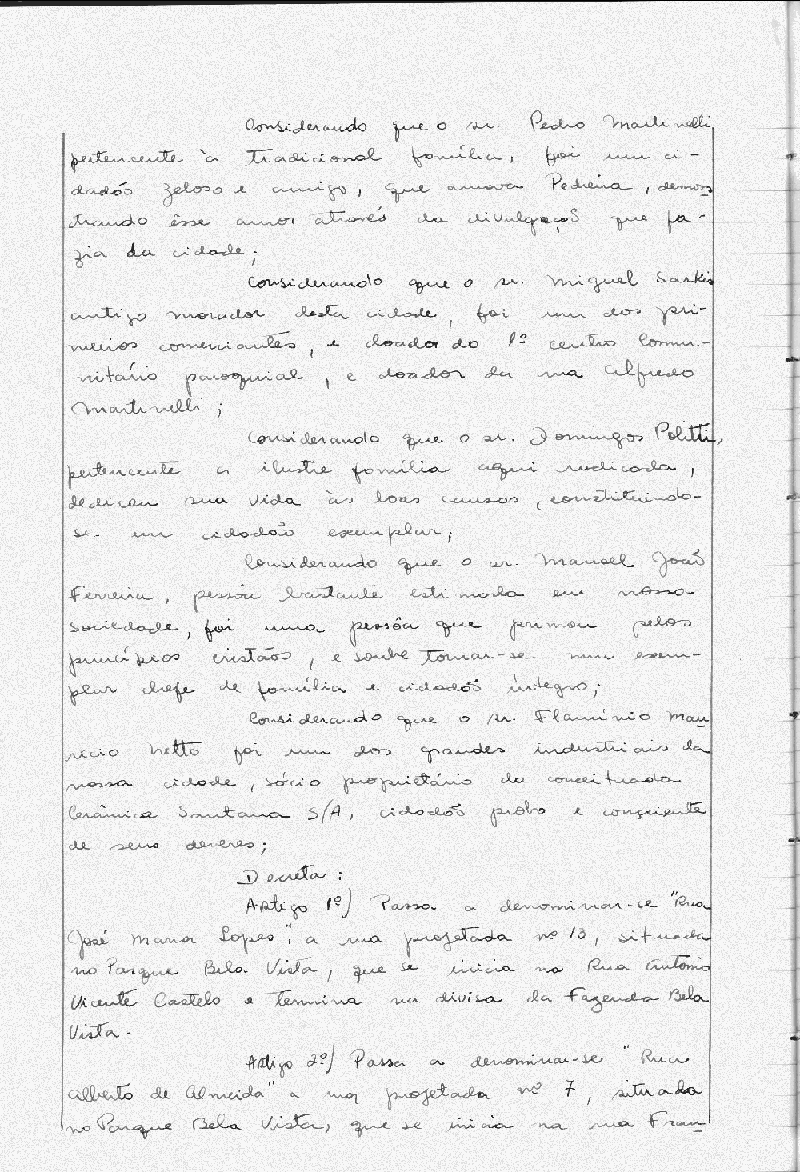 Considerando que o sr. Pedro Martinelli
pertencente à tradicional família, foi um ci-
dadão zeloso e amigo, que amava Pedreira, demons
trando êsse amor através da divulgação que fa-
zia da cidade;
Considerando que o sr. Miguel Sarkis
antigo morador desta cidade, foi um dos pri-
meiros comerciantes, e doador do 1º centro Comu-
nitário paroquial, e doador da rua Alfredo
Martinelli;
Considerando que o sr. Domingos Politti,
pertencente a ilustre família aqui radicada,
dedicou sua vida às boas causas, constituindo-
se em cidadão exemplar;
Considerando que o sr. Manoel João
Ferreira, pessôa bastante estimada em nossa
sociedade, foi uma pessôa que primou pelos
princípios cristãos, e soube tornar-se num exem-
plar chefe de família e cidadão íntegro;
Considerando que o sr. Flamínio Mau
ricio Netto foi um dos grandes industriais da
nossa cidade, sócio proprietário da conceituada
Cerâmica Santana S/A, cidadão probo e consciente
de seus deveres;
Decreta:
Artigo 1º) Passa a denominar-se "Rua
José Maria Lopes", a rua projetada nº 13, situada
no Parque Bela Vista, que se inicia na Rua Antonio
Vicente Castelo e termina na divisa da Fazenda Bela
Vista.
Artigo 2º) Passa a denominar-se "Rua
Alberto de Almeida" a rua projetada nº 7, situada
no Parque Bela Vista, que se inicia na rua Fran